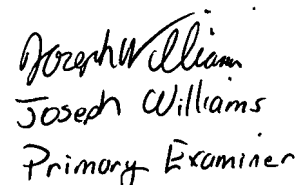 Joseph Williams
Joseph Williams
Primary Examiner